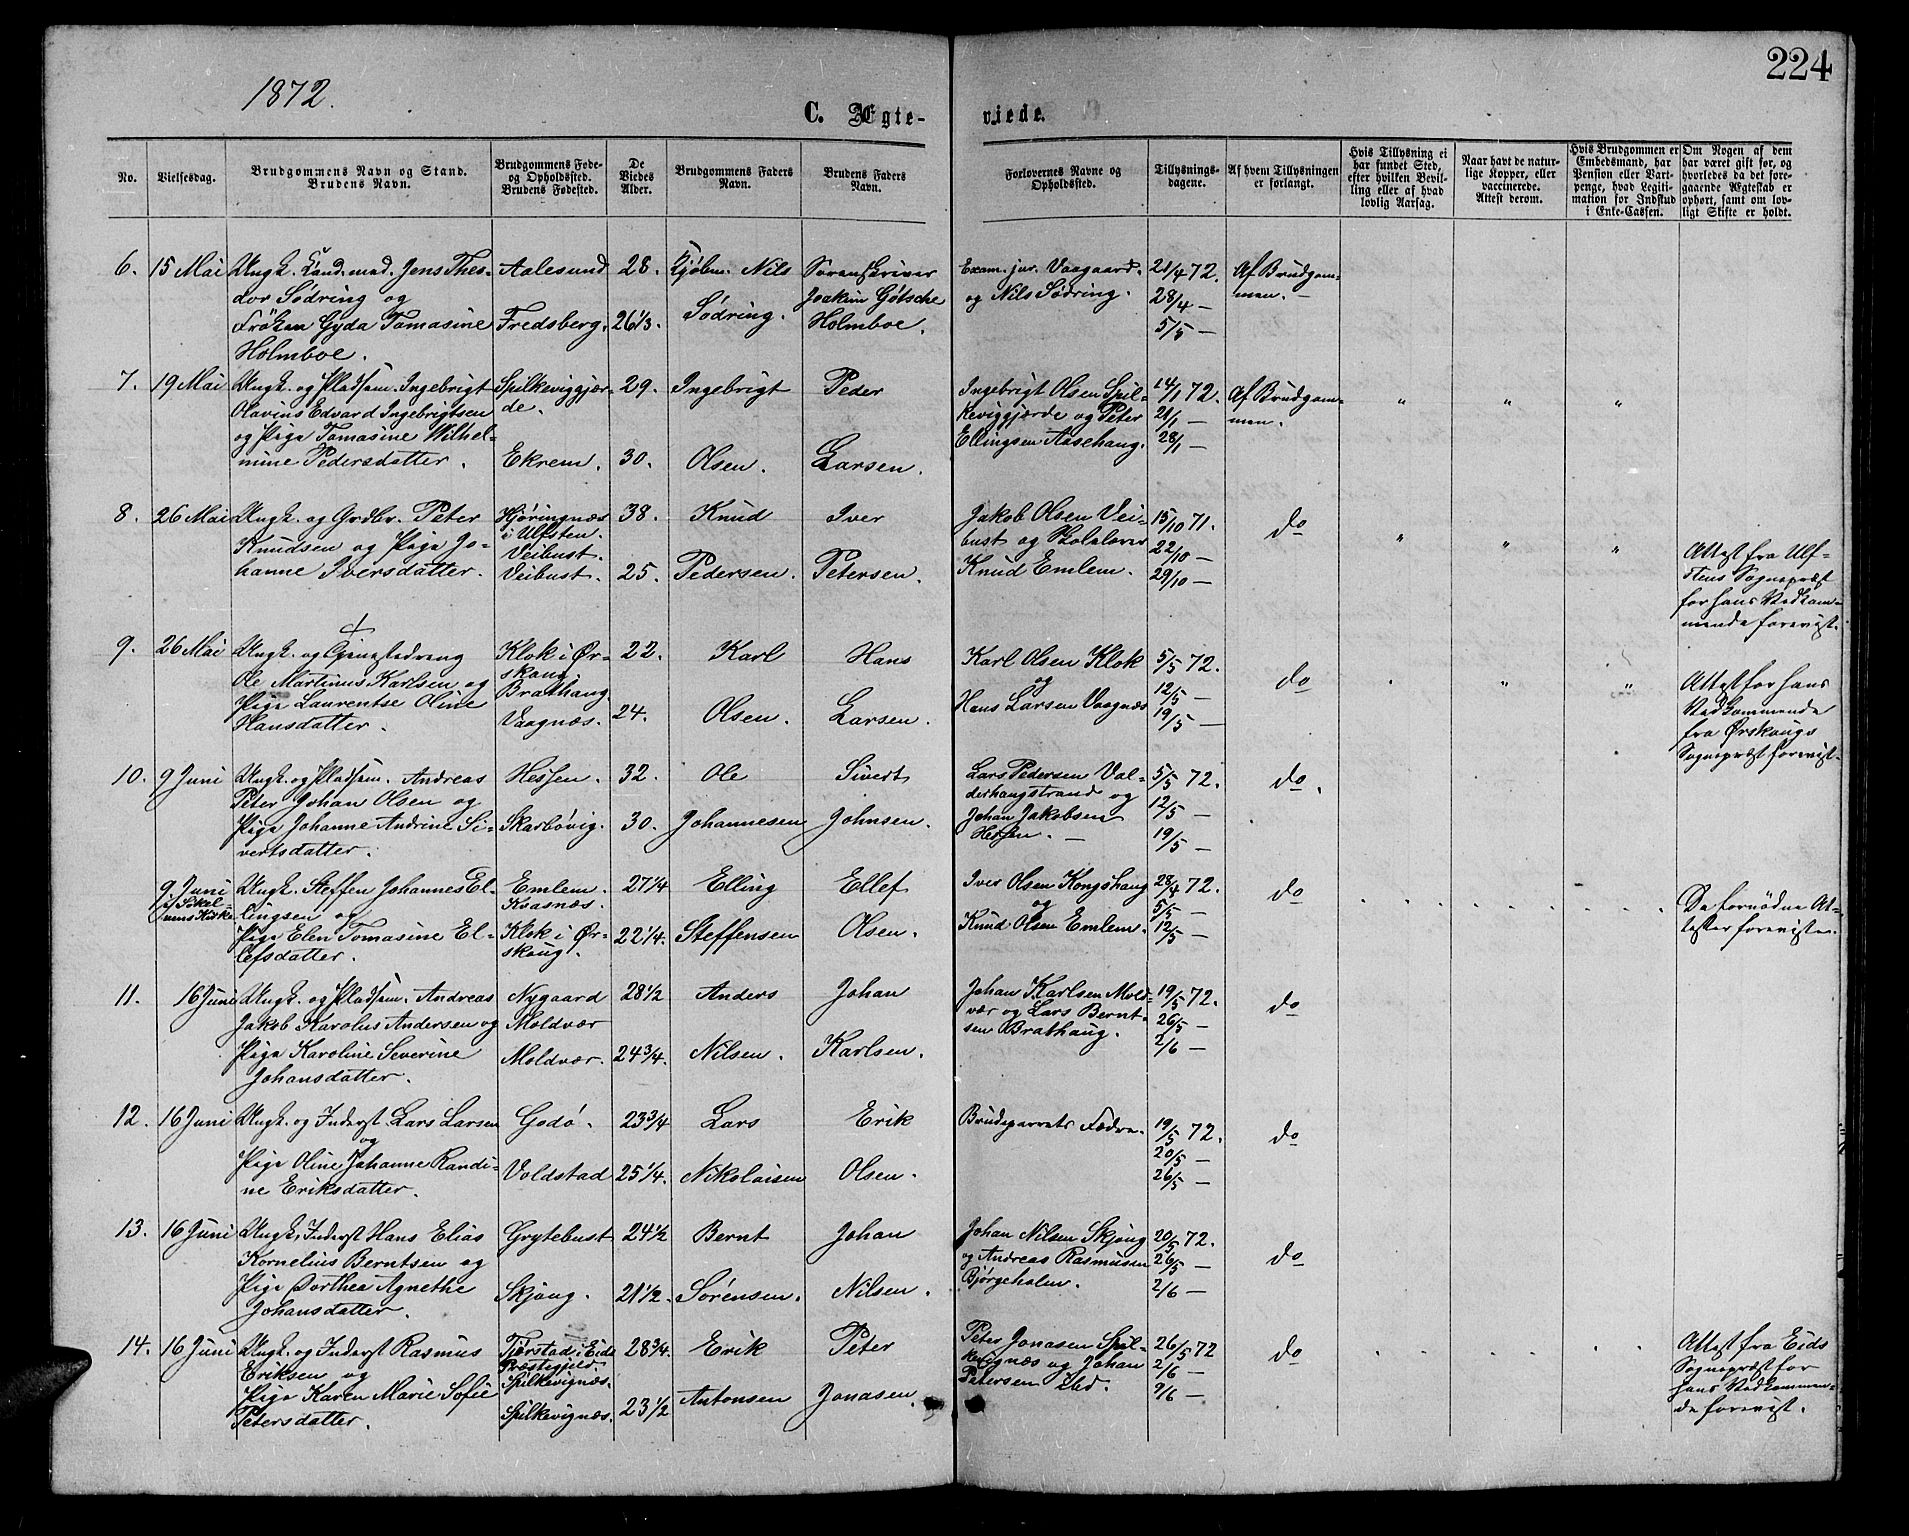 224
1872.
C. Ægte-
viede.
No.
Vielsesdag.
Brudgommens Navn og Stand.
Brudens Navn.
Brudgommens Føde-
og Opholdssted.
Brudens Fødested.
De
Viedes
Alder.
Brudgommens Faders
Navn.
Brudens Faders
Navn.
Forlovernes Navne og
Opholdssted.
Tillysnings-
dagene.
Af hvem Tillysningen
er forlangt.
Hvis Tillysning ei
har fundet Sted,
efter hvilken Bevil-
ling eller af hvad
lovlig Aarsag.
Naar havt de natur-
lige Kopper, eller
vaccinerede.
Attest derom.
Hvis Brudgommen er
Embedsmand, har
Pension eller Vart-
penge, hvad Legiti-
mation for Indskud
i Enke-Cassen.
Om Nogen af dem
har været gift før, og
hvorledes da det fore-
gaaende Ægteskab er
ophørt, samt om lov-
ligt Skifte er holdt.
6. 15 Mai
Ungk. Kand. med. Jens Theo-
dor Sødring og
Frøken Gyda Tomasine
Holmboe.
Aalesund
Fredsberg.
28.
26 1/3.
Kjøbm. Nils
Sødring.
Sorenskriver
Joakim Gøtsche
Holmboe.
Exam. jur. Vaagaard
og Nils Sødring.
21/4 72.
28/4 —
5/5 —
Af Brudgom-
men. —
7. 19 Mai
Ungk. og Pladsm. Ingebrigt
Olavius Edvard Ingebrigtsen
og Pige Tomasine Wilhel-
mine Pedersdatter.
Spilkeviggjær-
de.
Ekrem.
29.
30.
Ingebrigt
Olsen.
Peder
Larsen.
Ingebrigt Olsen Spil-
keviggjærde og Peter
Ellingsen Aasehaug.
14/1 72.
21/1 —
28/1 —
Af Brudgom-
men.
" " "
8. 26 Mai
Ungk. og Grdbr. Peter
Knudsen og Pige Jo-
hanne Iversdatter.
Hjøringnæs
i Ulfsten.
Veibust.
Veibust.
38.
25.
Knud
Pedersen.
Iver
Petersen.
Jakob Olsen Vei-
bust og Skolelærer
Knud Emlem.
15/10 71.
22/10 —
29/10 —
do
" " "
Attest fra Ulf-
stens Sognepræst
for hans Vedkom-
mende forevist.
9. 26 Mai
Ungk. og Tjenestedreng
Ole Martinus Karlsen og
Pige Laurentse Oline
Hansdatter.
Klok i Ør-
skoug,
Brathaug.
Vaagnæs.
22.
24.
Karl
Olsen.
Hans
Larsen.
Karl Olsen Klok
og
Hans Larsen Vaagnæs
5/5 72.
12/5 —
19/5 —
do
" "
Attest for hans
Vedkommende
fra Ørskougs
Sognepræst forevist.
10. 9 Juni
Ungk. og Pladsm. Andreas
Peter Johan Olsen og
Pige Johanne Andrine Si-
vertsdatter.
Hessen.
Skarbøvig.
32.
30.
Ole
Johannesen
Sivert
Johnsen.
Lars Pedersen Val-
derhaugstrand og
Johan Jakobsen
Hessen. —
5/5 72.
12/5 —
19/5 —
do.
9. Juni
Ungk. Steffen Johannes El-
lingsen og
Pige Elen Tomasine El-
lefsdatter.
Emlem.
Kvasnæs.
Klok i Ør-
skoug.
27 1/4
22 1/4.
Elling
Steffensen
Ellef
Olsen.
Iver Olsen Kongshaug
og
Knud Olsen Emlem.
28/4 72.
5/5 —
12/5 —
do
De fornødne At-
tester foreviste.
11. 16 Juni
Ungk. og Pladsm. Andreas
Jakob Karolus Andersen og
Pige Karoline Severine
Johansdatter.
Nygaard
Moldvær
Moldvær.
28 1/2
24 3/4.
Anders
Nilsen.
Johan
Karlsen.
Johan Karlsen Mold-
vær og Lars Bernt-
sen Brathaug.
19/5 72.
26/5 —
2/6 —
do
12. 16 Juni
Ungk. og Inderst Lars Larsen
og
Pige Oline Johanne Randi-
ne Eriksdatter.
Godø.
Voldstad
23 3/4
25 1/4.
Lars
Nikolaisen
Erik
Olsen.
Brudeparrets Fædre.
19/5 72.
20/5 —
26/5 —
do
13. 16 Juni
Ungk., Inderst Hans Elias
Kornelius Berntsen og
Pige Dorthea Agnethe
Johansdatter.
Grytebust
Skjong.
24 1/2
21 1/2.
Bernt
Sørensen.
Johan
Nilsen.
Johan Nilsen Skjong
og Andreas Rasmusen
Bjørgeholm.
20/5 72.
26/5 —
2/6 —
do
14. 16 Juni
Ungk. og Inderst Rasmus
Eriksen og
Pige Karen Marie Sofie
Petersdatter.
Tjørstad i Eids
Præstegjeld.
Spilkevignæs.
Spilkevignæs.
28 3/4.
23 1/2
Erik
Antonsen
Peter
Jonasen.
Peter Jonasen Spil-
kevignæs og Johan
Petersen ibd.
26/5 72
2/6 —
9/6 —
do
Attest fra Eids
Sognepræst for
hans Vedkommen-
de forevist.